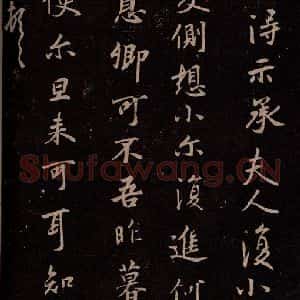 得示承夫人復小
反側想小尔復進何
息卿可不吾昨暮
便尔旦来可耳知
Shufawang.CN